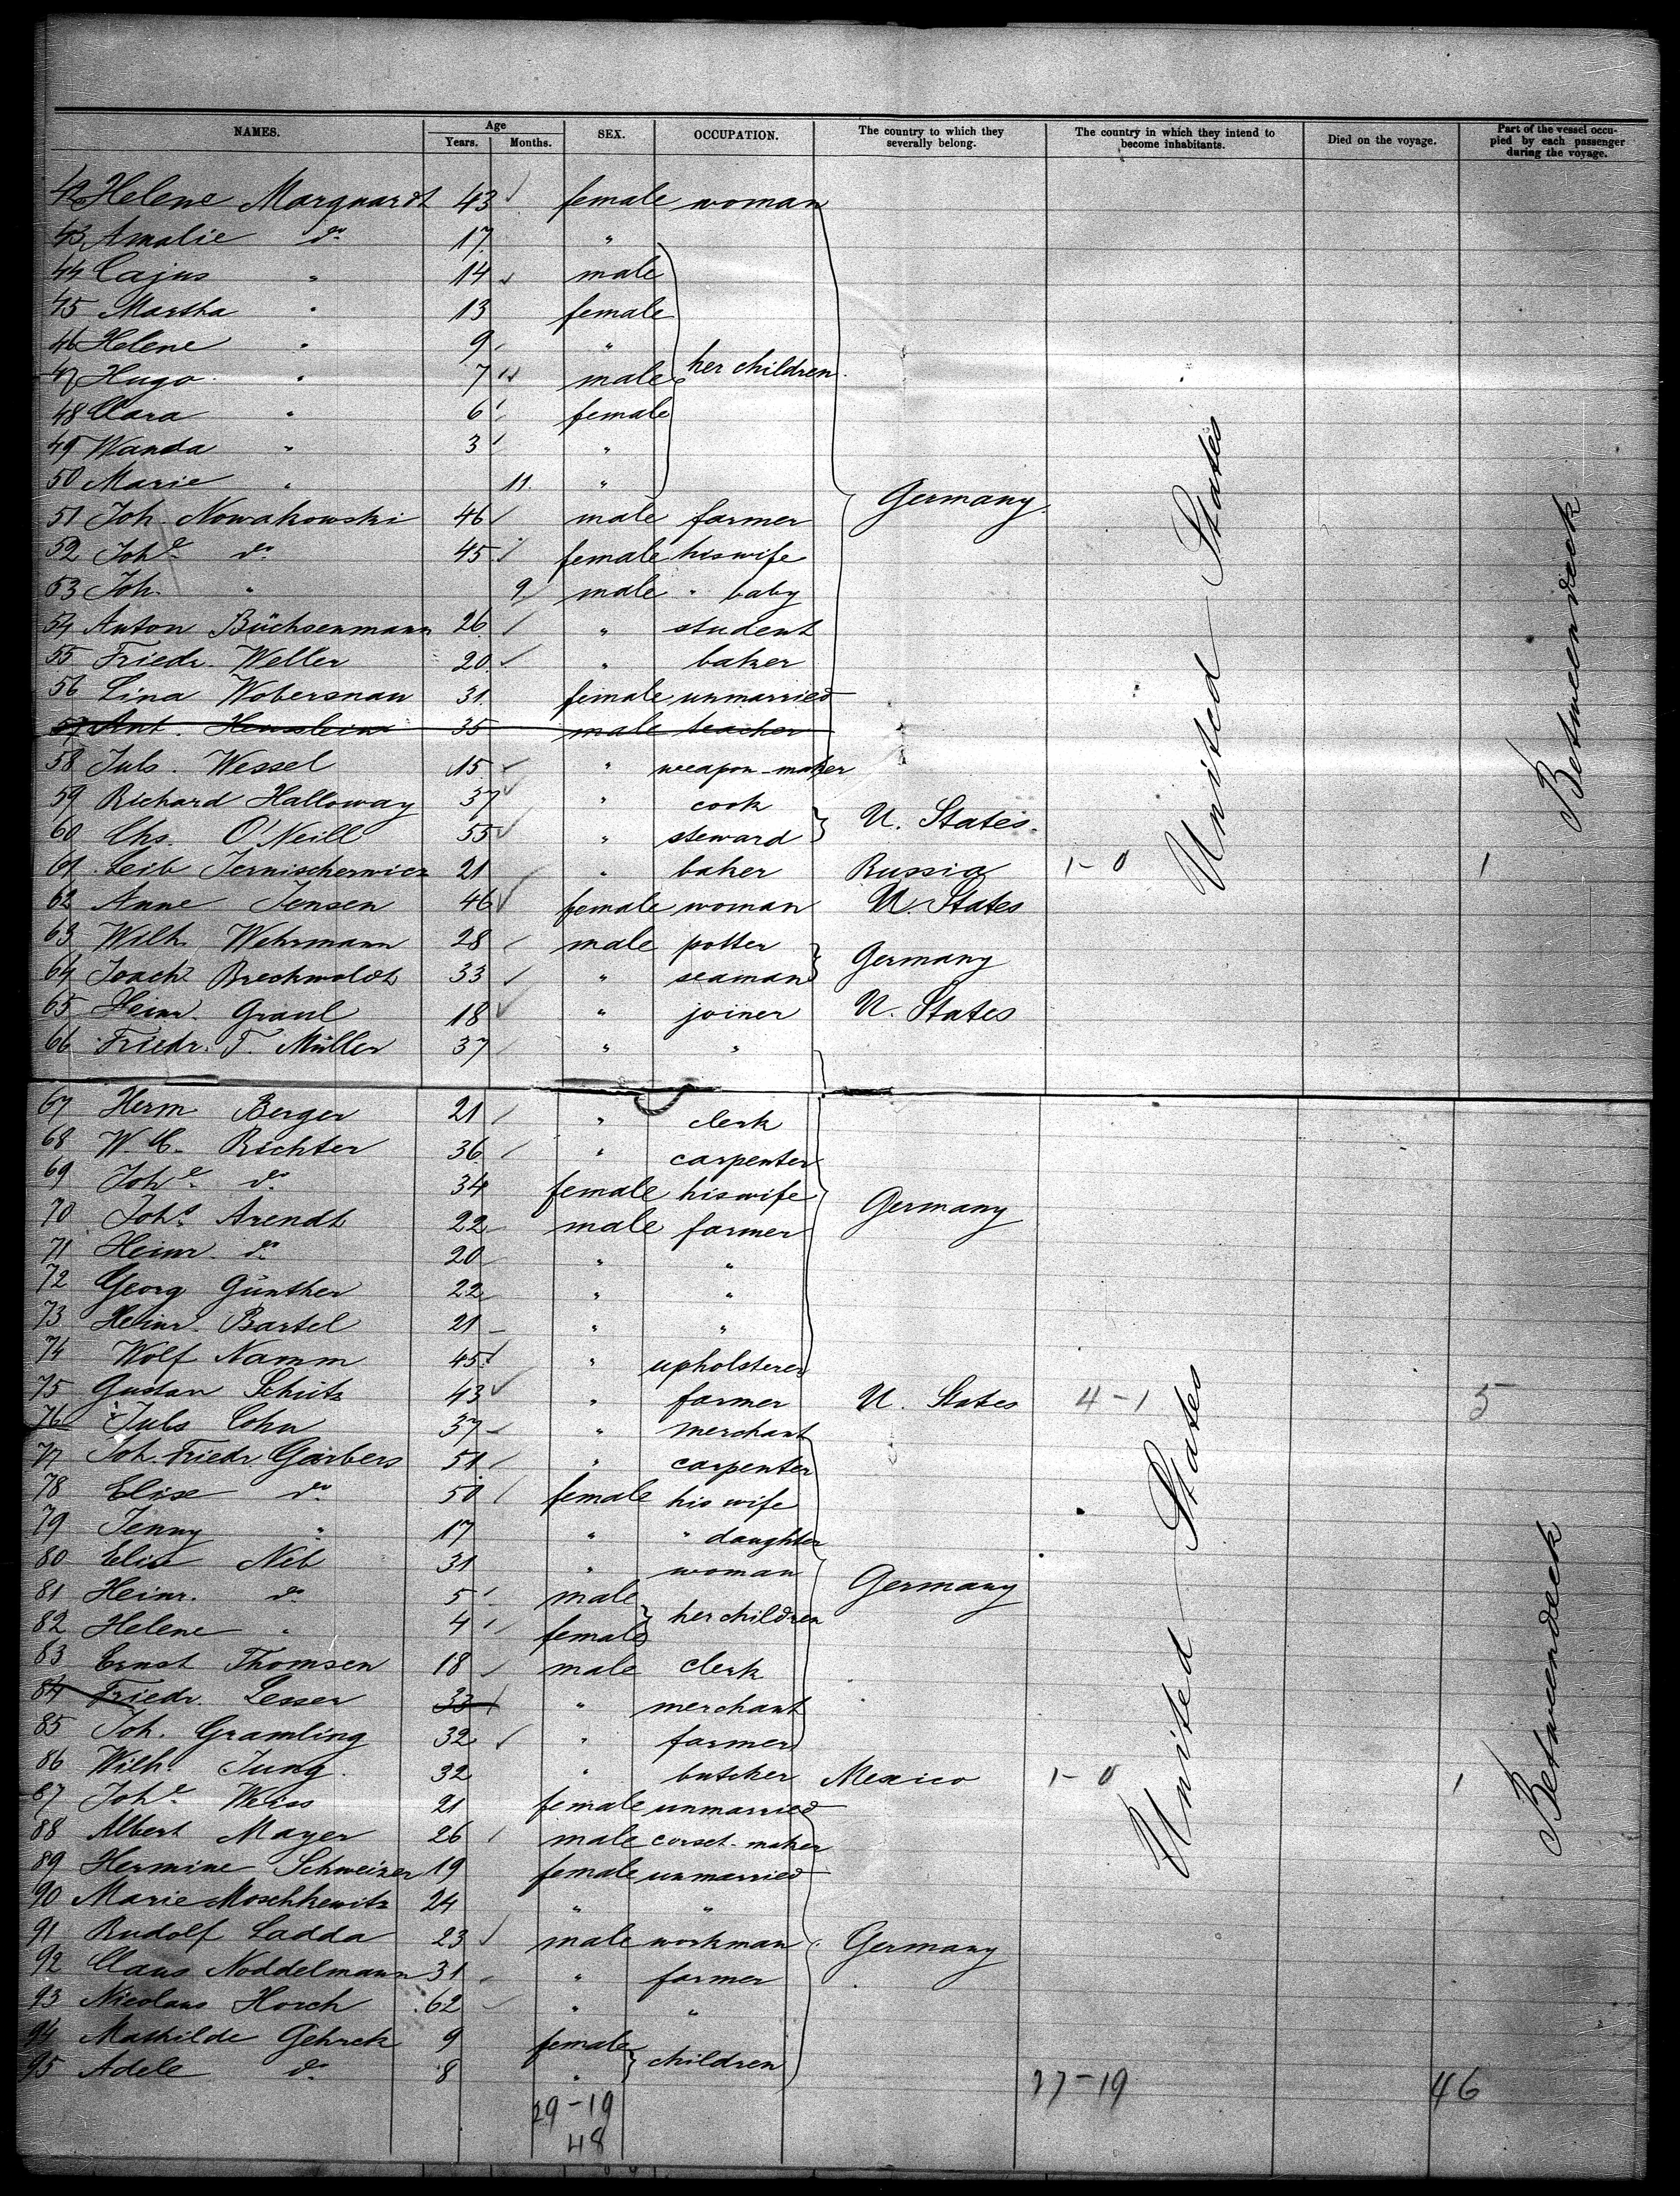 NAMES. Age Years. Months. SEX. OCCUPATION. The country to which they severally belong. The country in which they intend to become inhabitants. Died on the voyage. Part of the vessel occupied by each passenger during the voyage.
42 Helene Marquardt 43 female woman
43 Amalie do 17 "
44 Cajus " 14 male
45 Martha " 13 female
46 Helene " 9 "
47 Hugo " 7 male her children
48 Clara " 6 female
49 Wanda " 3 "
50 Marie " 11 "
51 Joh. Nowakowski 46 male farmer Germany
52 Johe do 45 female his wife
53 Joh. " 9 male " baby
54 Anton Büchsenmann 26 " student
55 Friedr. Weller 20 " baker
56 Lina Wobersnau 31 female unmarried
57 Ant. 35 male teacher
58 Juls. Wessel 15 " weapon-maker
59 Richard Halloway 37 " cook
60 Chs. O'Neill 55 " steward U. States
61 Leib 21 " baker Russia 1-0 1
62 Anne Jensen 46 female woman U. States
63 Wilh. Wehrmann 28 male potter
64 Joach. Brechwoldt 33 " seaman Germany
65 Heinr. Graul 18 " joiner U. States
66 Friedr. T. Müller 37 " "
United States
Betweendeck
67 Herm. Berger 21 " clerk
68 W. C. Richter 36 " carpenter
69 Johe do 34 female his wife
70 Johs. Arendt 22 male farmer Germany
71 Heinr. do 20 " "
72 Georg Günther 22 " "
73 Heinr. Bartel 21 " "
74 Wolf Namm 45 " upholsterer
75 Gustav Schütz 43 " farmer U. States 4-1 5
76 Juls Cohn 37 " merchant
77 Joh. Friedr. Garbers 51 " carpenter
78 Elise do 50 female his wife
79 Jenny " 17 " " daughter
80 Elise Neb 31 " woman
81 Heinr. do 5 male Germany
82 Helene " 4 female her children
83 Ernst Thomsen 18 male clerk
84 Friedr. Lesser 33 " merchant
85 Joh. Gramling 32 " farmer
86 Wilh. Jung. 32 " butcher Mexico 1-0 1
87 Johe Weiss 21 female unmarried
88 Albert Mayer 26 male corset-maker
89 Hermine Schweizer 19 female unmarried
90 Marie Moschkewitz 24 " "
91 Rudolf Ladda 23 male workman Germany
92 Claus Noddelmann 31 " farmer
93 Nicolaus Horch 62 " "
94 Mathilde Gehrck 9 female
95 Adele do 8 " children
United States
Betweendeck
29-19 27-19 46
48